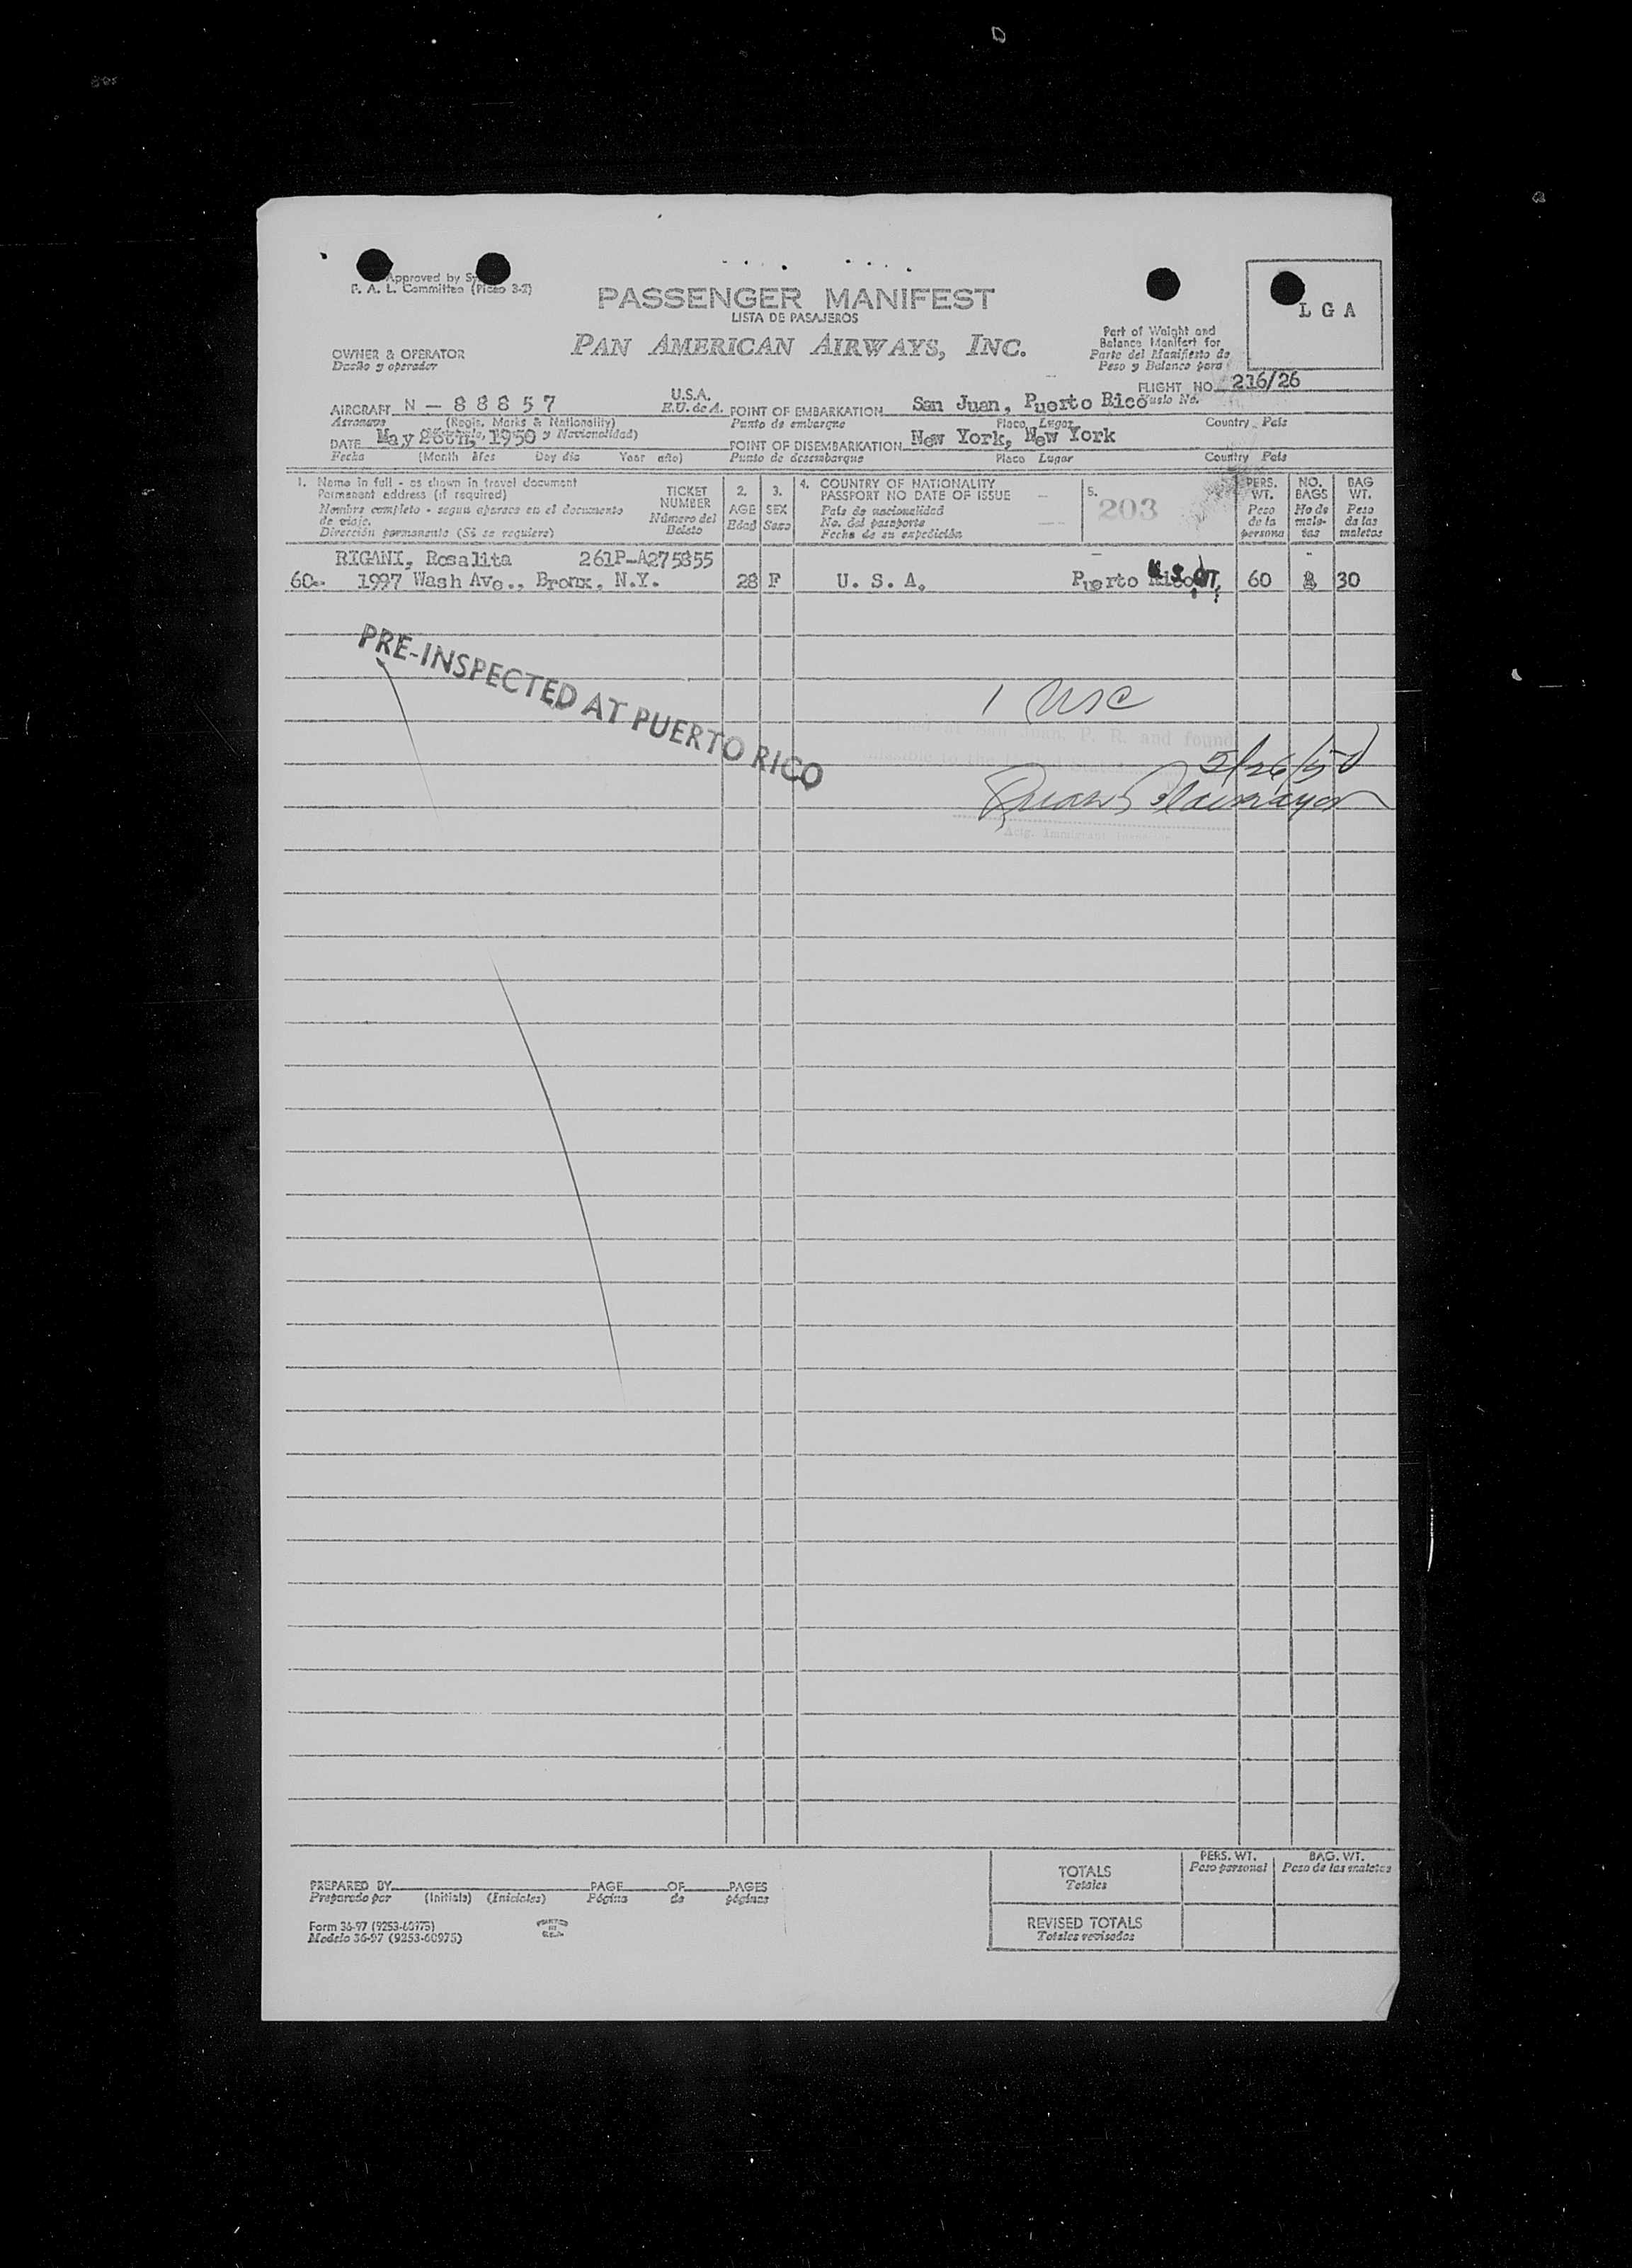 Approved by
F. A. L. Committee (Picao 3-2)
PASSENGER MANIFEST
LISTA DE PASAJEROS
PAN AMERICAN AIRWAYS, INC.
L G A
Part of Weight and
Balance Manifest for
Parte del Manifiesto de
Peso y Balance para
OWNER & OPERATOR
Dueño y operador
FLIGHT NO. 216/26
Vuelo No.
AIRCRAFT N - 88857 U.S.A.
E.U. de A.
Aeronave (Regis. Marks & Nationality)
y Nacionalidad)
POINT OF EMBARKATION San Juan, Puerto Rico
Punto de embarque Place Lugar Country Pais
DATE May 26th, 1950
Fecha (Month Mes Day dia Year año)
POINT OF DISEMBARKATION New York, New York
Punto de desembarque Place Lugar Country Pais
1. Name in full - as shown in travel document
Permanent address (if required)
Nombre completo - segun aparece en el documento
de viaje.
Dirección permanente (Si se requiere)
TICKET
NUMBER
Número del
Boleto
2.
AGE
Edad
3.
SEX
Sexo
4. COUNTRY OF NATIONALITY
PASSPORT NO DATE OF ISSUE
Pais de nacionalidad
No. del pasaporte
Fecha de su expedición
5.
203
PERS.
WT.
Peso
de la
persona
NO.
BAGS
No de
male-
tas
BAG
WT.
Peso
de las
maletas
RIGANI, Rosalita 261P-A275855
60. 1997 Wash Ave., Bronx, N.Y. 28 F U. S. A. Puerto Rico 60 30
PRE-INSPECTED AT PUERTO RICO
1 USC
San Juan, P. R. and found
5/26/50
TOTALS
Totales
PERS. WT.
Peso personal
BAG. WT.
Peso de las maletas
REVISED TOTALS
Totales revisados
PREPARED BY PAGE OF PAGES
Preparado por (Initials) (Iniciales) Página de páginas
Form 36-97 (9253-60975)
Modelo 36-97 (9253-60975)